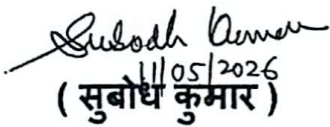 Subodh Kumar
11/05/2026
( सुबोध कुमार )